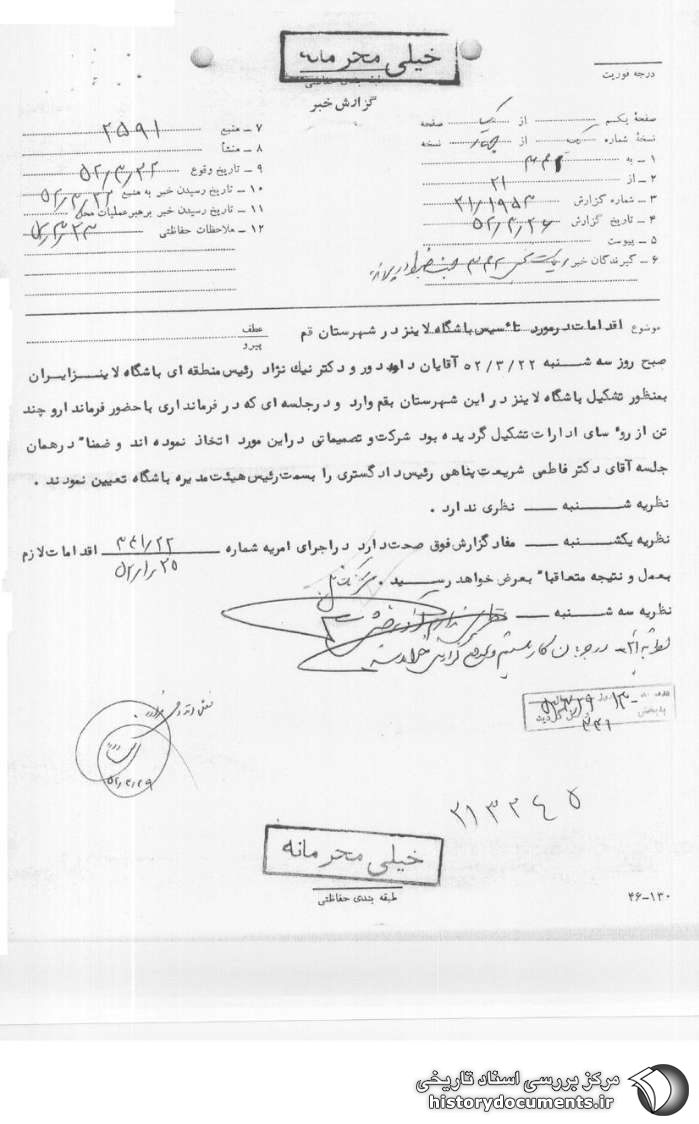 خیلی محرمانه
طبقه بندی حفاظتی
گزارش خبر
درجه فوریت
صفحهٔ یکم از یک صفحه
نسخهٔ شماره یک از چهار نسخه
۱ ـ به ۳۴۱
۲ ـ از ۲۱
۳ ـ شماره گزارش ۲۱/۱۹۵۳
۴ ـ تاریخ گزارش ۵۲/۳/۲۶
۵ ـ پیوست
۶ ـ گیرندگان خبر
۷ ـ منبع ۲۵۹۱
۸ ـ منشأ
۹ ـ تاریخ وقوع ۵۲/۳/۲۲
۱۰ ـ تاریخ رسیدن خبر به منبع ۵۲/۳/۲۲
۱۱ ـ تاریخ رسیدن خبر برهبرعملیات محل
۱۲ ـ ملاحظات حفاظتی ۵۲/۳/۲۳
موضوع اقدامات درمورد تأسیس باشگاه لاینز در شهرستان قم
عطف
پیرو
صبح روز سه شنبه ۵۲/۳/۲۲ آقایان داود دور و دکتر نیک نژاد رئیس منطقه ای باشگاه لاینز ایران
بمنظور تشکیل باشگاه لاینز در این شهرستان بقم وارد و درجلسه ای که در فرمانداری با حضور فرماندارو چند
تن از روسای ادارات تشکیل گردیده بود شرکت و تصمیماتی دراین مورد اتخاذ نموده اند و ضمناً درهمان
جلسه آقای دکتر فاطمی شریعت پناهی رئیس دادگستری را بسمت رئیس هیئت مدیره باشگاه تعیین نمودند .
نظریه شنبه ــ نظری ندارد .
نظریه یکشنبه ــ مفاد گزارش فوق صحت دارد در اجرای امریه شماره ۳۴۱/۲۲ اقدامات لازم
۵۲/۱/۲۵
بعمل و نتیجه متعاقباً بعرض خواهد رسید .
نظریه سه شنبه ــ نظری ندارم
۵۲/۳/۲۹
۳۴۱
۲۱۳۲۴۵
خیلی محرمانه
طبقه بندی حفاظتی
۴۶-۱۳۰
مرکز بررسی اسناد تاریخی
historydocuments.ir